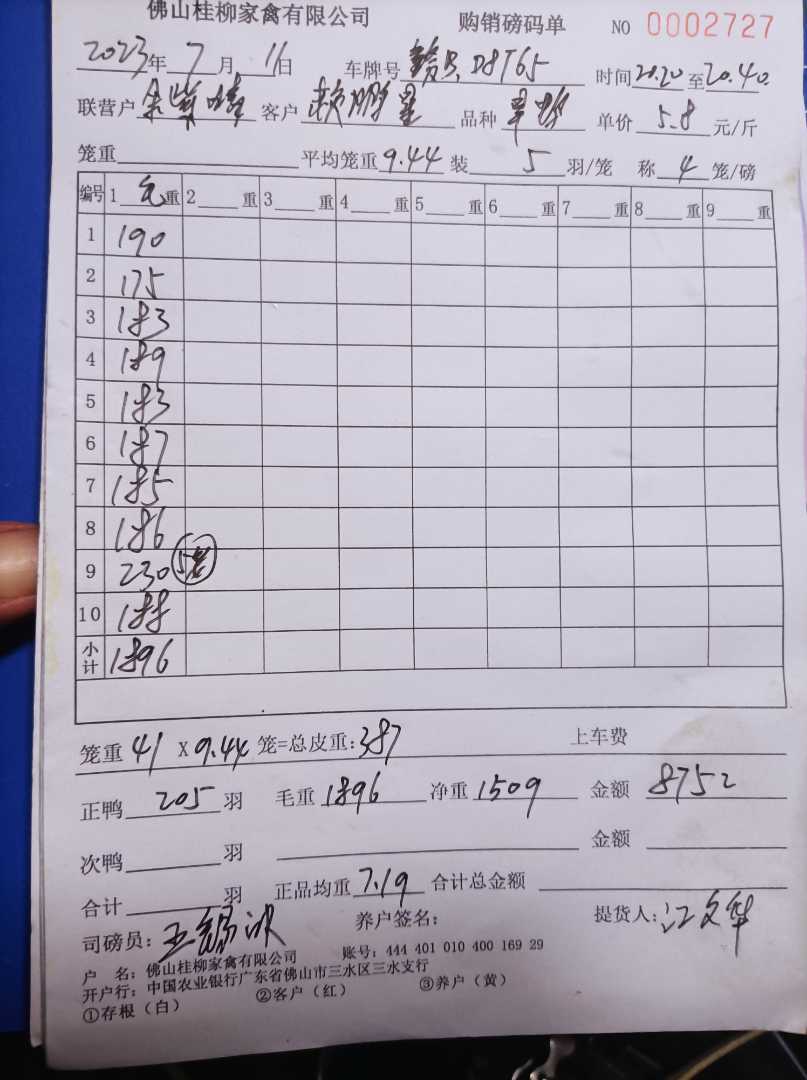 佛山桂柳家禽有限公司 购销磅码单 NO 0002727
2023年 7月 11日 车牌号 赣B.D8T65 时间20.20至20.40.
联营户 客户 赖鹏星 品种 单价 5.8 元/斤
笼重 平均笼重9.44 装 5 羽/笼 称 4 笼/磅
编号 1 毛重 2 重 3 重 4 重 5 重 6 重 7 重 8 重 9 重
1 190
2 175
3 183
4 189
5 183
6 187
7 185
8 186
9 230 5笼
10 188
小计 1896
笼重 41 X 9.44 笼=总皮重:387 上车费
正鸭 205 羽 毛重 1896 净重 1509 金额 8752
次鸭 羽 金额
合计 羽 正品均重 7.19 合计总金额
司磅员: 王锡冰 养户签名: 提货人: 江文华
户 名: 佛山桂柳家禽有限公司 账号: 444 401 010 400 169 29
开户行: 中国农业银行广东省佛山市三水区三水支行
①存根（白） ②客户（红） ③养户（黄）